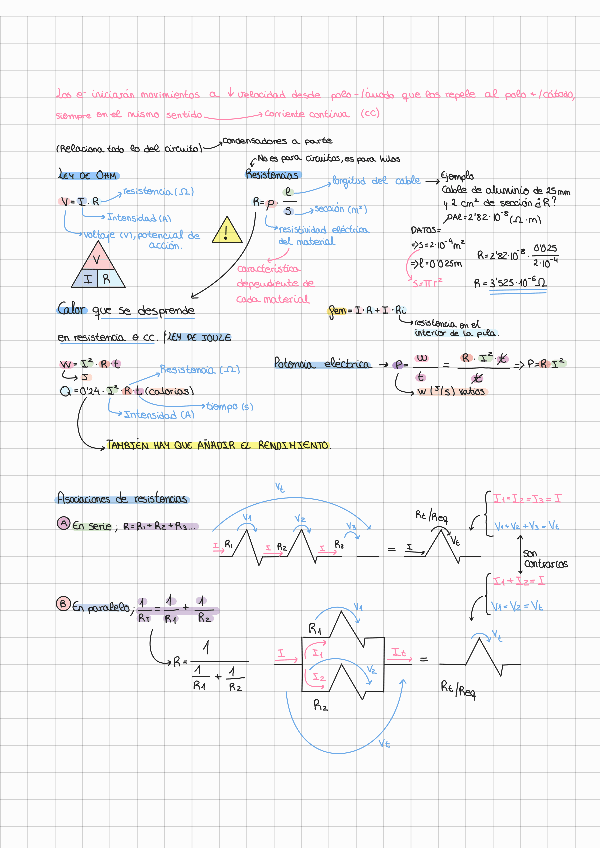 Los e- iniciarán movimientos a ↓ velocidad desde polo -/ánodo que los repele al polo +/cátodo,
siempre en el mismo sentido → corriente continua (CC)
(Relaciona todo lo del circuito) → condensadores a parte
→ No es para circuitos, es para hilos
LEY DE OHM
V = I · R
resistencia (Ω)
Intensidad (A)
voltaje (V), potencial de
acción.
V
I R
Resistencias
R = ρ · l/s
longitud del cable
sección (m²)
resistividad eléctrica
del material
característica
dependiente de
cada material
!
→ Ejemplo
Cable de aluminio de 25mm
y 2 cm² de sección ¿R?
ρAl = 2'82·10⁻⁸ (Ω·m)
DATOS=
⇒ S = 2·10⁻⁴ m²
⇒ l = 0'025m
S = π r²
R = 2'82·10⁻⁸ · 0'025/2·10⁻⁴
R = 3'525·10⁻⁶ Ω
Calor que se desprende
en resistencia e CC. / LEY DE JOULE
W = I² · R · t
→ J
Q = 0'24 · I² · R · t (calorías)
Resistencia (Ω)
tiempo (s)
Intensidad (A)
→ TAMBIÉN HAY QUE AÑADIR EL RENDIMIENTO.
fem = I · R + I · Ri
→ resistencia en el
interior de la pila.
Potencia eléctrica → P = W/t = R · I² · t/t ⇒ P = R I²
→ W (J/s) vatios
Asociaciones de resistencias
A En serie; R = R1 + R2 + R3...
Vt
V1 V2 V3
I R1 I R2 I R3 = I Rt/Req Vt
I1 = I2 = I3 = I
V1 + V2 + V3 = Vt
son
contrarios
I1 + I2 = I
V1 = V2 = Vt
B En paralelo; 1/RT = 1/R1 + 1/R2
→ R = 1/(1/R1 + 1/R2)
I R1 V1 I1 I2 V2 R2 It Vt = Vt Rt/Req